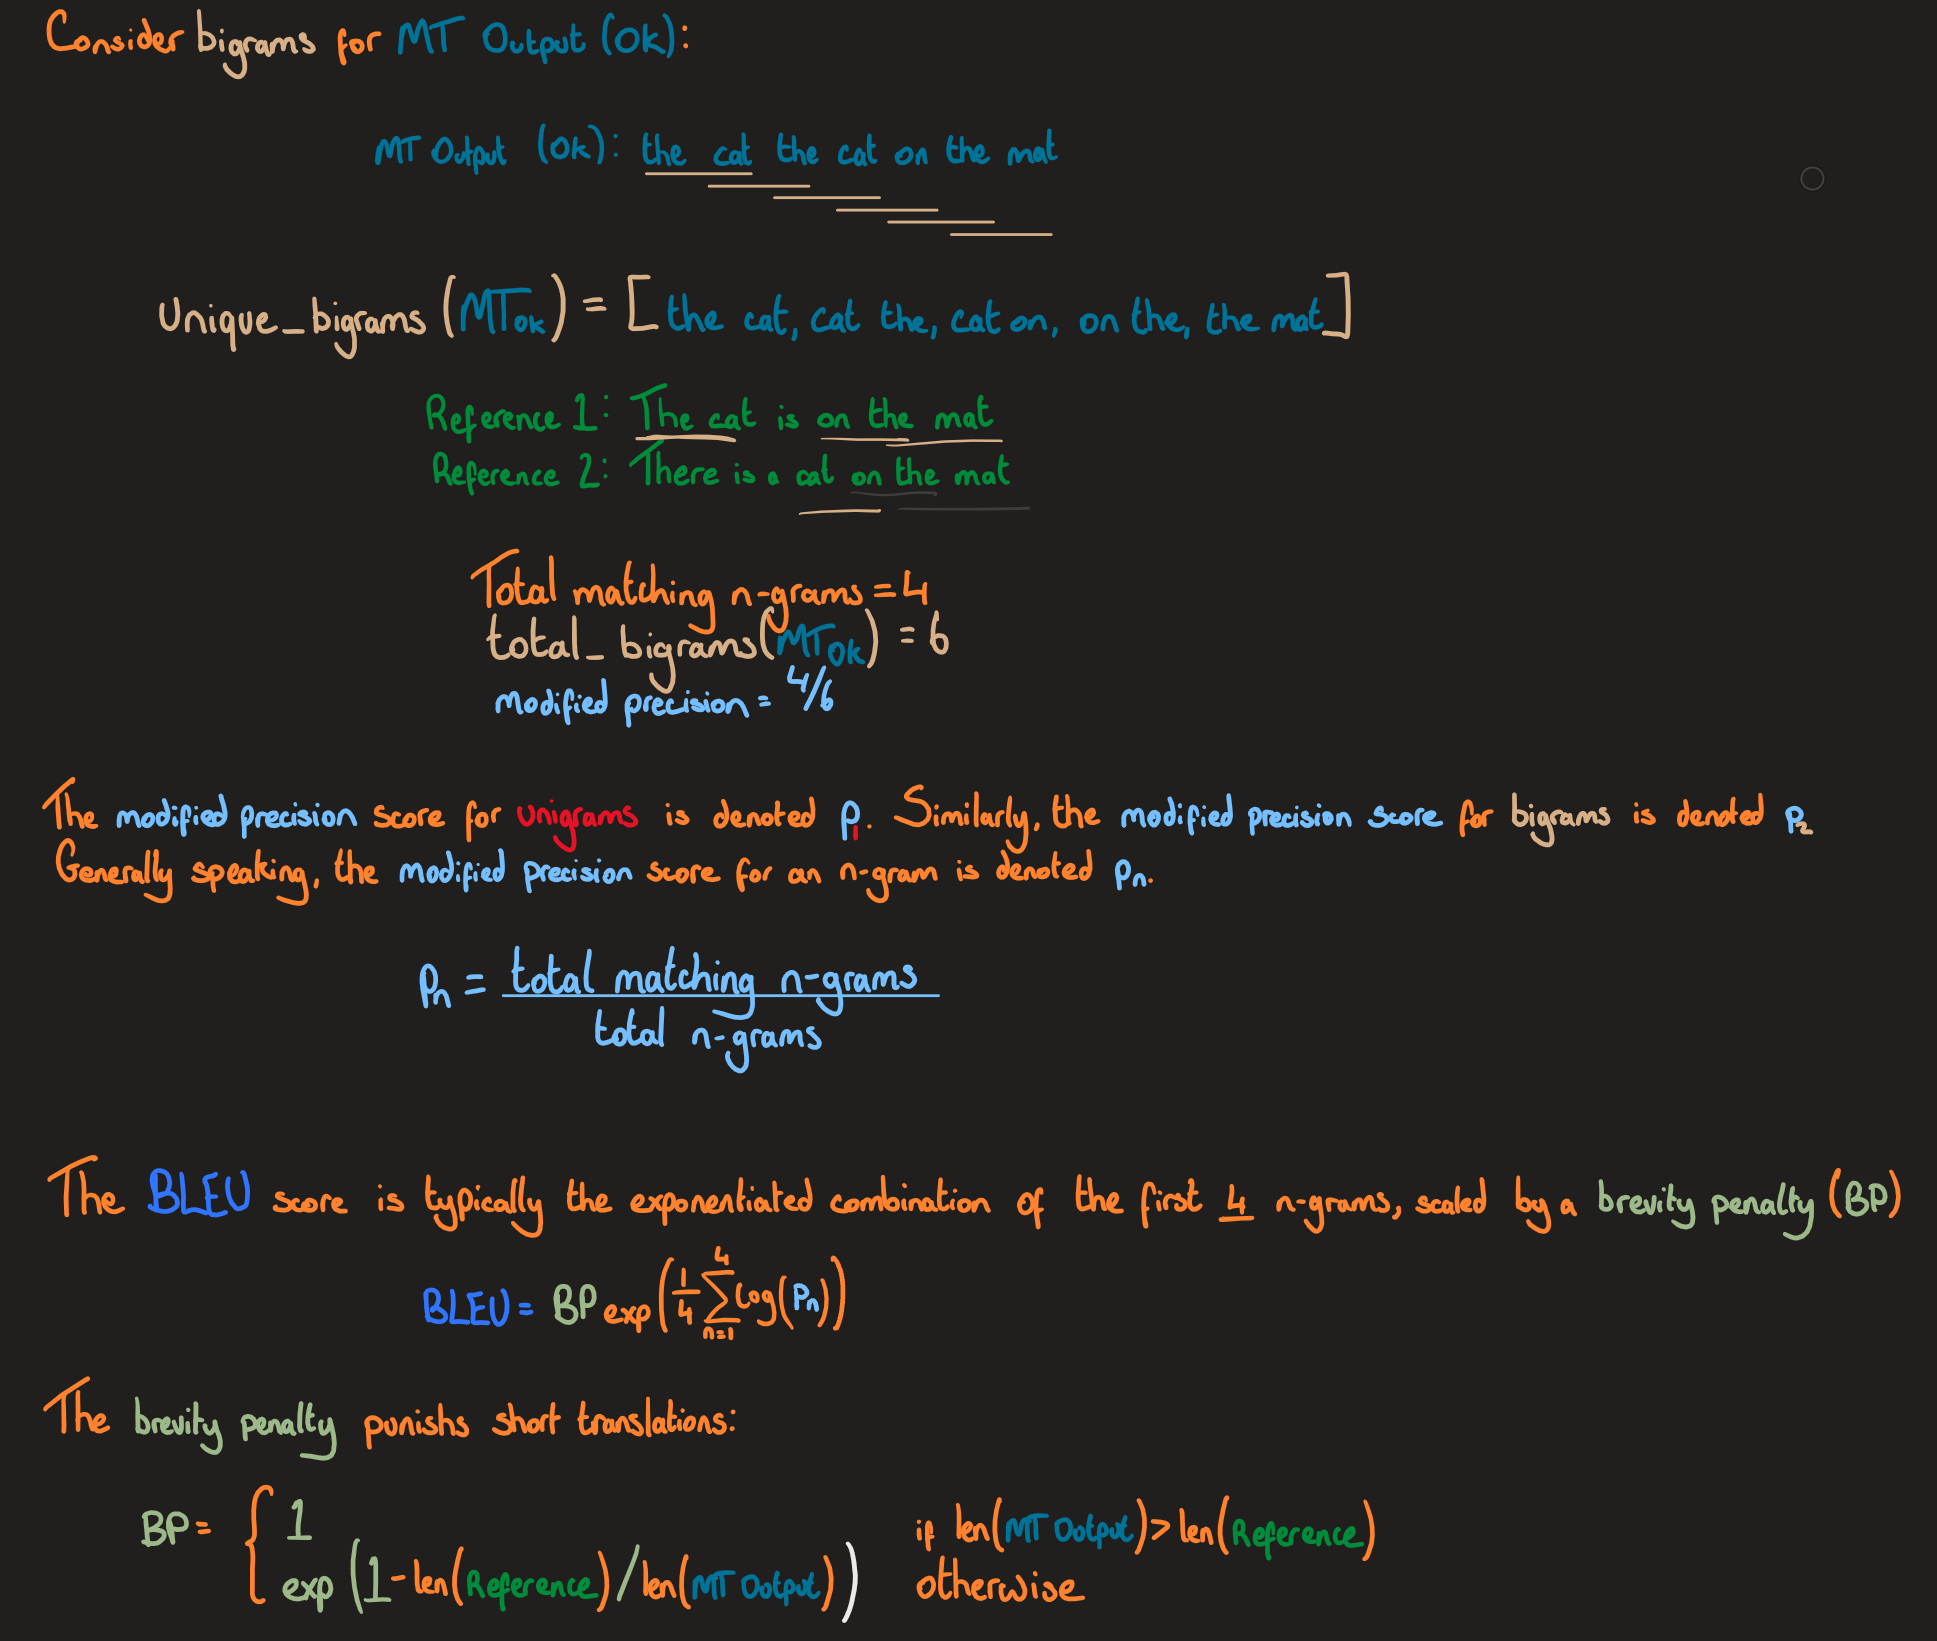 Consider bigrams for MT Output (Ok):
MT Output (Ok): the cat the cat on the mat
Unique_bigrams (MTok) = [the cat, cat the, cat on, on the, the mat]
Reference 1: The cat is on the mat
Reference 2: There is a cat on the mat
Total matching n-grams = 4
total_bigrams(MTOk) = 6
modified precision = 4/6
The modified precision score for unigrams is denoted p₁. Similarly, the modified precision score for bigrams is denoted p₂
Generally speaking, the modified precision score for an n-gram is denoted pₙ.
Pₙ = total matching n-grams / total n-grams
The BLEU score is typically the exponentiated combination of the first 4 n-grams, scaled by a brevity penalty (BP)
BLEU = BP exp(1/4 ∑ₙ₌₁⁴ log(Pₙ))
The brevity penalty punishs short translations:
BP = { 1 if len(MT Output) > len(Reference)
exp (1 - len(Reference) / len(MT Output)) otherwise